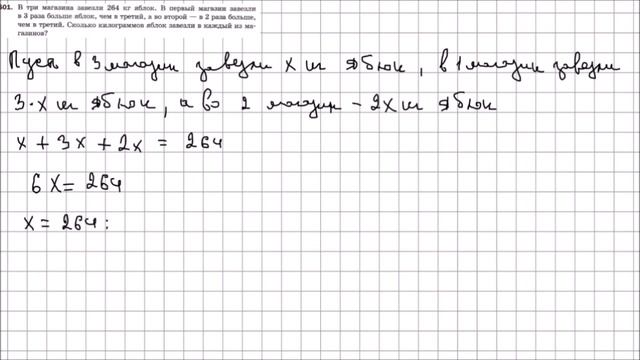 601. В три магазина завезли 264 кг яблок. В первый магазин завезли
в 3 раза больше яблок, чем в третий, а во второй — в 2 раза больше,
чем в третий. Сколько килограммов яблок завезли в каждый из ма-
газинов?
Пусть в 3 магазин завезли x кг яблок, в 1 магазин завезли
3·x кг яблок, а во 2 магазин - 2x кг яблок
x + 3x + 2x = 264
6x = 264
x = 264 :